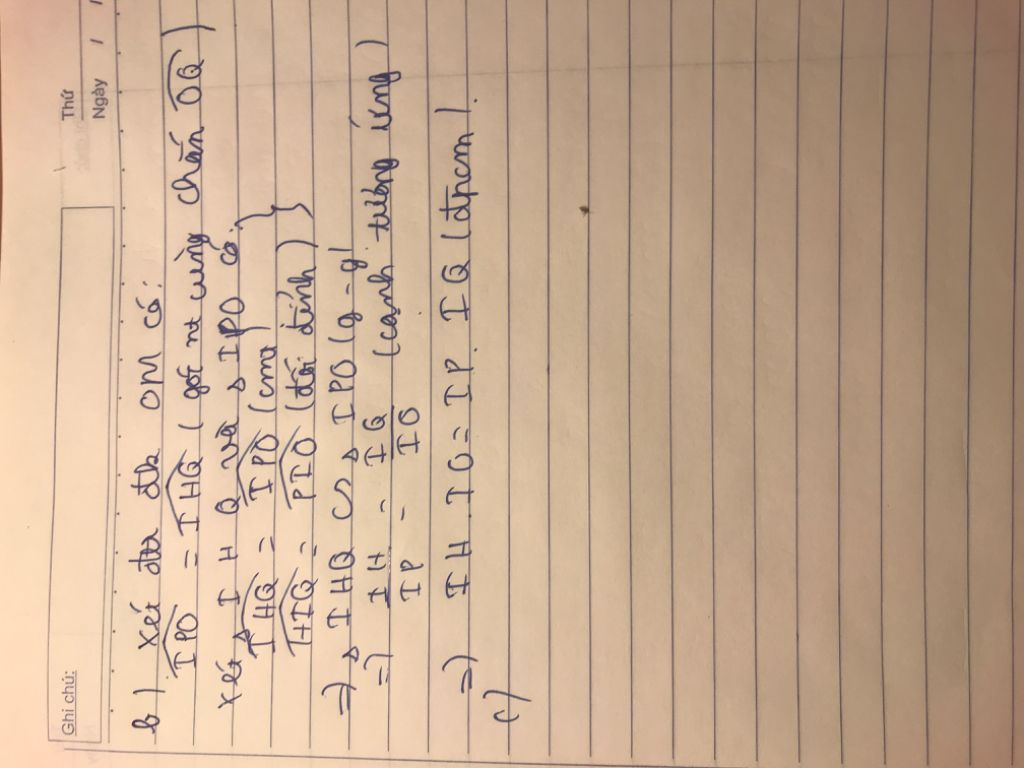 Ghi chú:
Thứ
Ngày / /
b) Xét đtr đk OM có:
IPO = IHQ (góc nt cùng chắn OQ)
Xét △ IHQ và △ IPO có:
IHQ = IPO (cmt)
HIQ = PIO (đối đỉnh)
=> △ IHQ ∽ △ IPO (g-g)
=> IH/IP = IQ/IO (cạnh tương ứng)
=> IH.IO = IP.IQ (đpcm).
c)